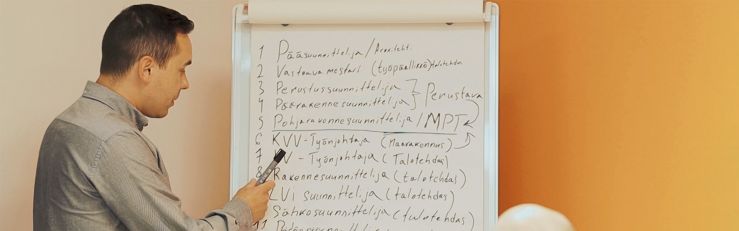 1 Pääsuunnittelija / Arkkitehti
2 Vastaava mestari (työpäällikkö) talotehdas
3 Perustussuunnittelija
4 Päärakennesuunnittelija } Perustava
5 Pohjarakennesuunnittelija / MPT
6 KVV-Työnjohtaja (Maarakennus)
7 IV - Työnjohtaja (Talotehdas)
8 Rakennesuunnittelija (talotehdas)
LVI suunnittelija (talotehdas)
Sähkösuunnittelija (talotehdas)
11